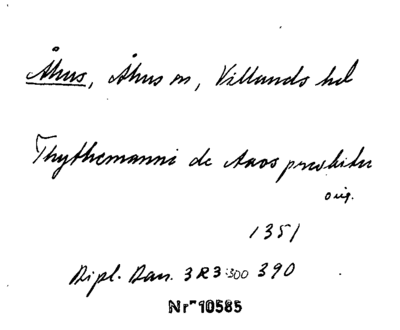 Åhus, Åhus sn, Villands hd
Thythemanni de Aaos presbiter
orig.
1351
Dipl. Dan. 3R3:500 390
Nr 10585